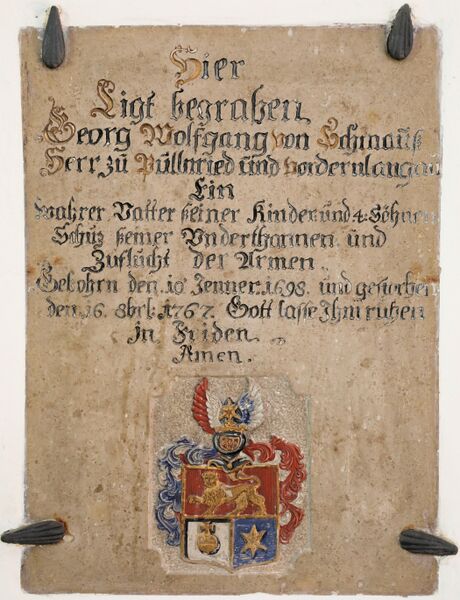 Hier
Ligt begraben
Georg Wolfgang von Schmauß
Herr zu Pullnried und Vordernlangau
Ein
Wahrer Vatter seiner Kinder und 4 Söhnen
Schuz seiner Underthannen und
Zuflucht der Armen
Gebohrn den 10 Jenner 1698. und gestorben
den 16. 8brl. 1767. Gott lasse Ihm ruhen
in Friden
Amen.